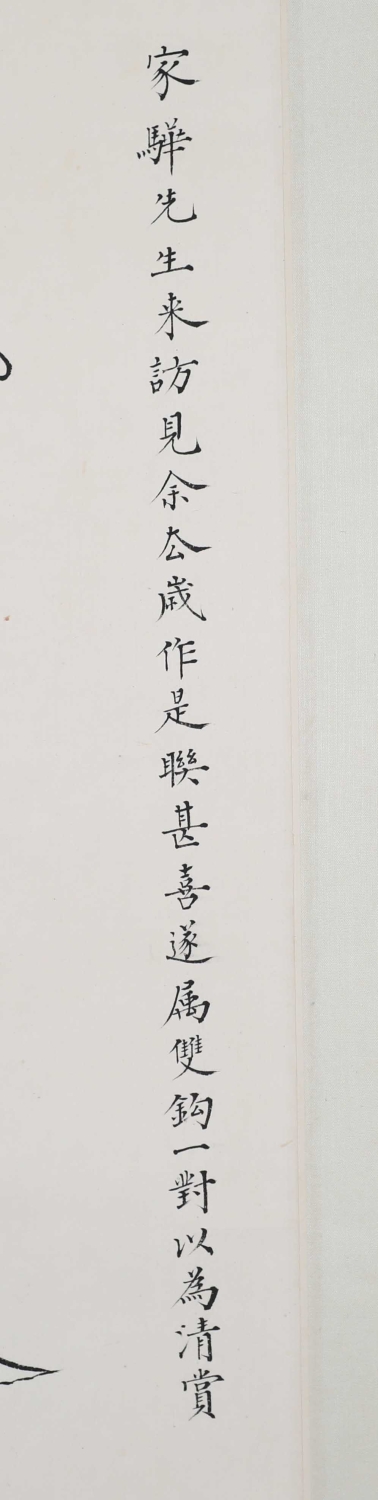 家驊先生来訪見余厺歲作是聨甚喜遂属雙鈎一對以為清賞